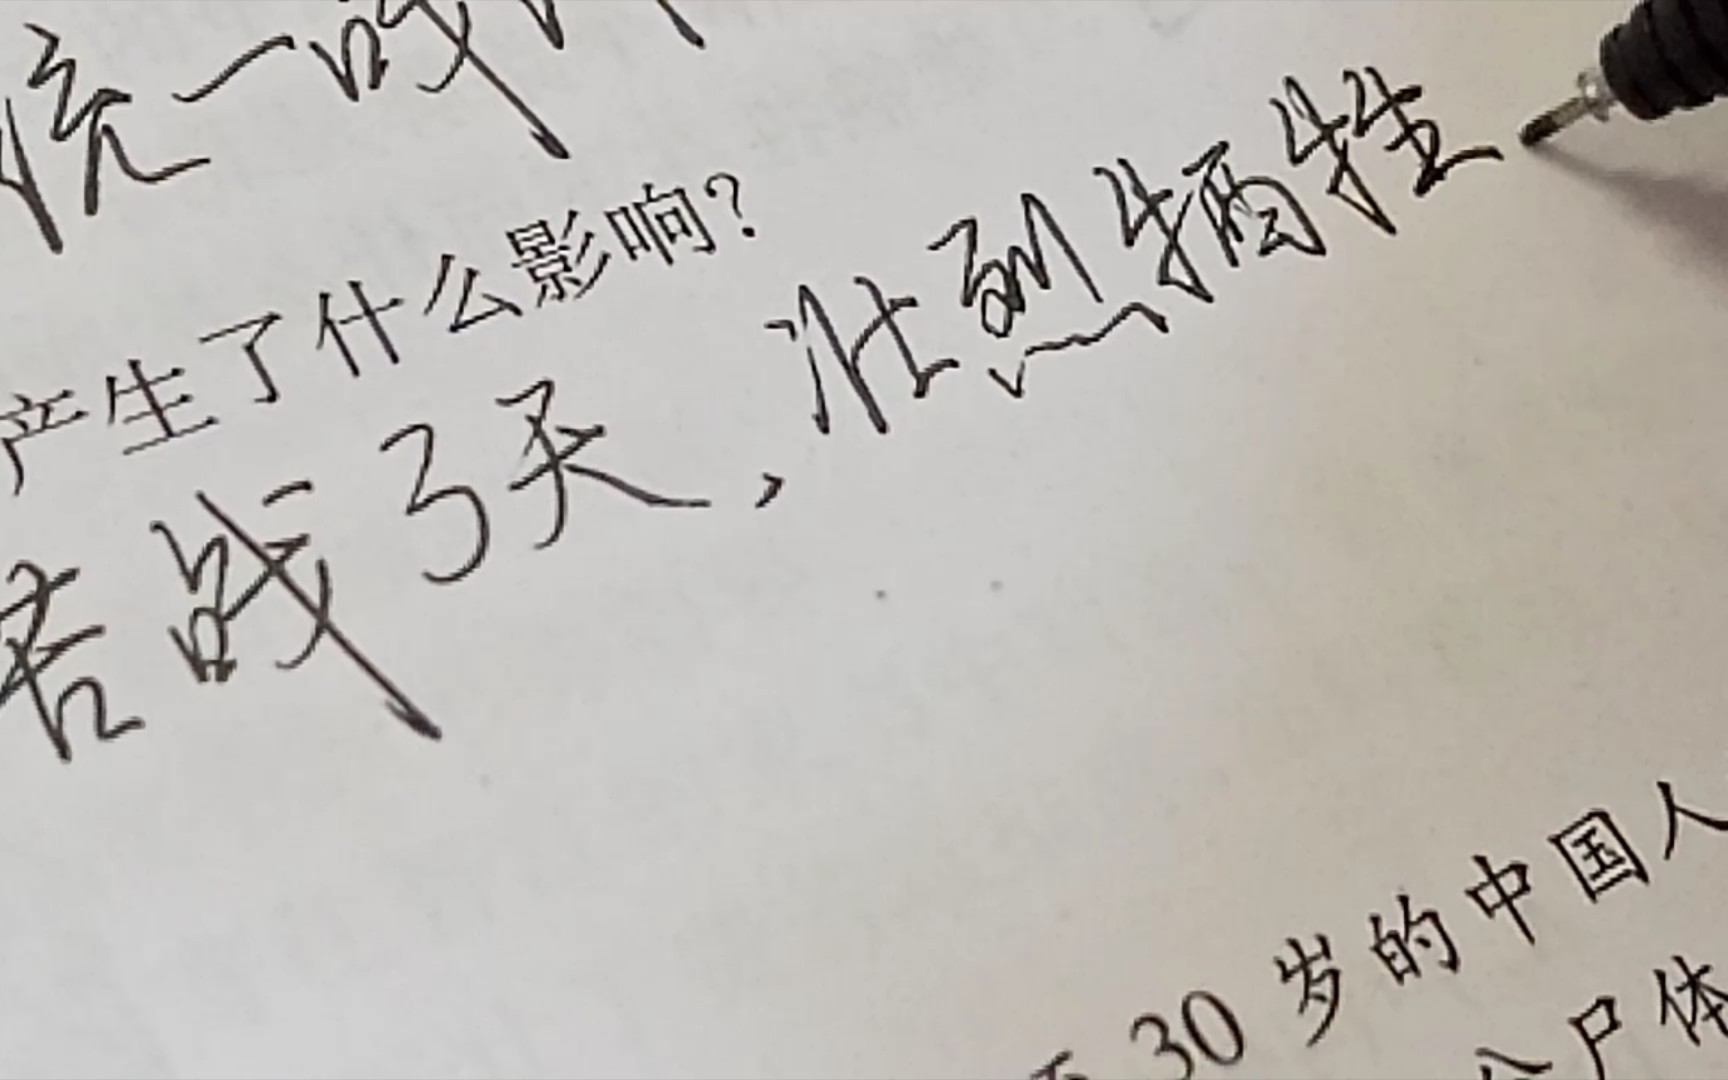 统一战
产生了什么影响?
苦战3天，壮烈牺牲
30岁的中国人
尸体